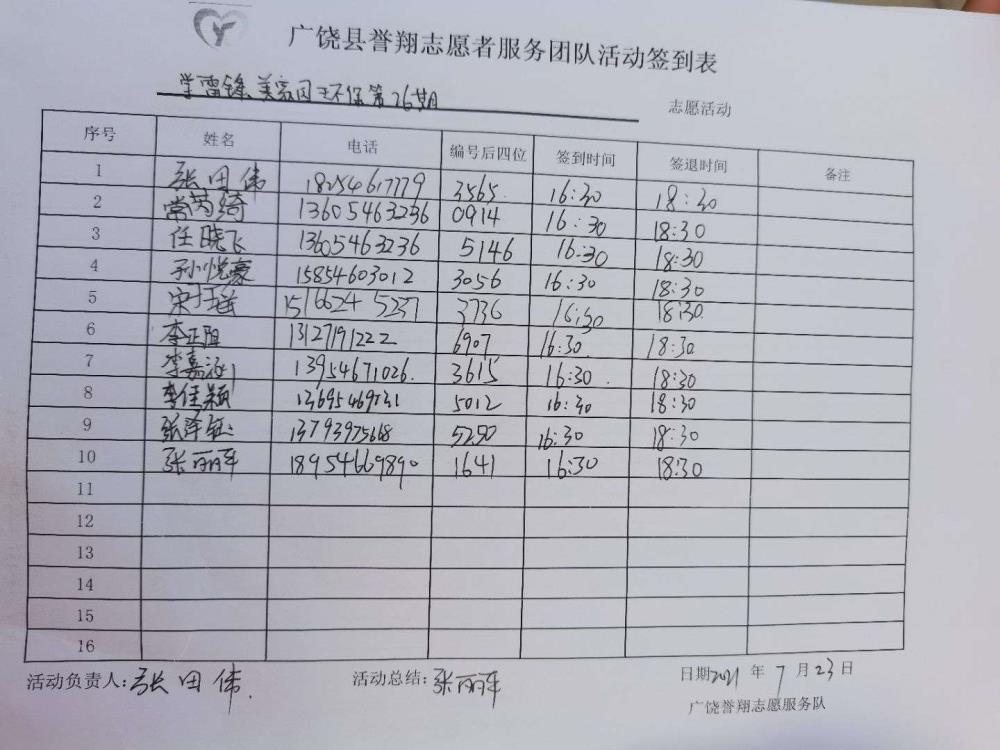 广饶县誉翔志愿者服务团队活动签到表
学雷锋美家园环保第26期 志愿活动
序号 姓名 电话 编号后四位 签到时间 签退时间 备注
1 张田伟 18254617779 3565 16:30 18:30
2 常芮绮 13605463236 0914 16:30 18:30
3 任晓飞 13605463236 5146 16:30 18:30
4 孙悦豪 15854603012 3056 16:30 18:30
5 3736 16:30 18:30
6 李正阳 13127191222 6907 16:30 18:30
7 李嘉涵 13954671026 3615 16:30 18:30
8 李佳颖 13695469731 5012 16:30 18:30
9 13793975668 5250 16:30 18:30
10 张丽萍 18954669890 1641 16:30 18:30
11
12
13
14
15
16
活动负责人:张田伟. 活动总结:张丽萍 日期2021年7月23日
广饶誉翔志愿服务队